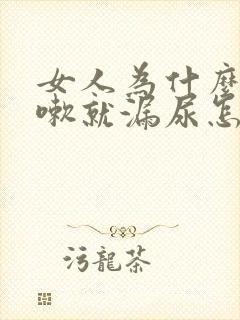 女人為什麼
嗽就漏尿怎
污龍茶